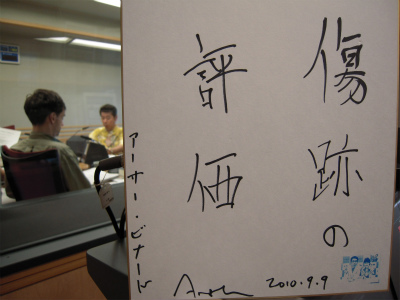 傷跡の
評価
アーサー・ビナード
2010.9.9